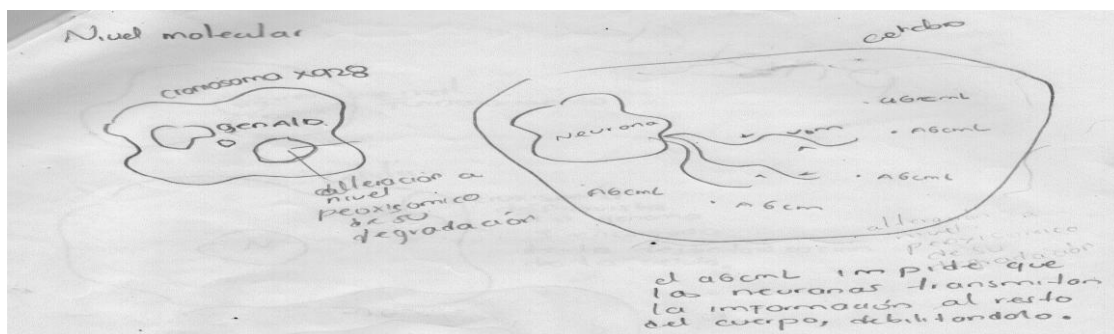 Nivel molecular
cromosoma xq28
gen AlD
alteración a
nivel
peoxisomico
de su
degradación
cerebro
Neurona
aGcmL
AGcmL
AGcmL
AGcmL
AGcm
el aGcmL impide que
las neuronas transmitan
la información al resto
del cuerpo, debilitandolo.